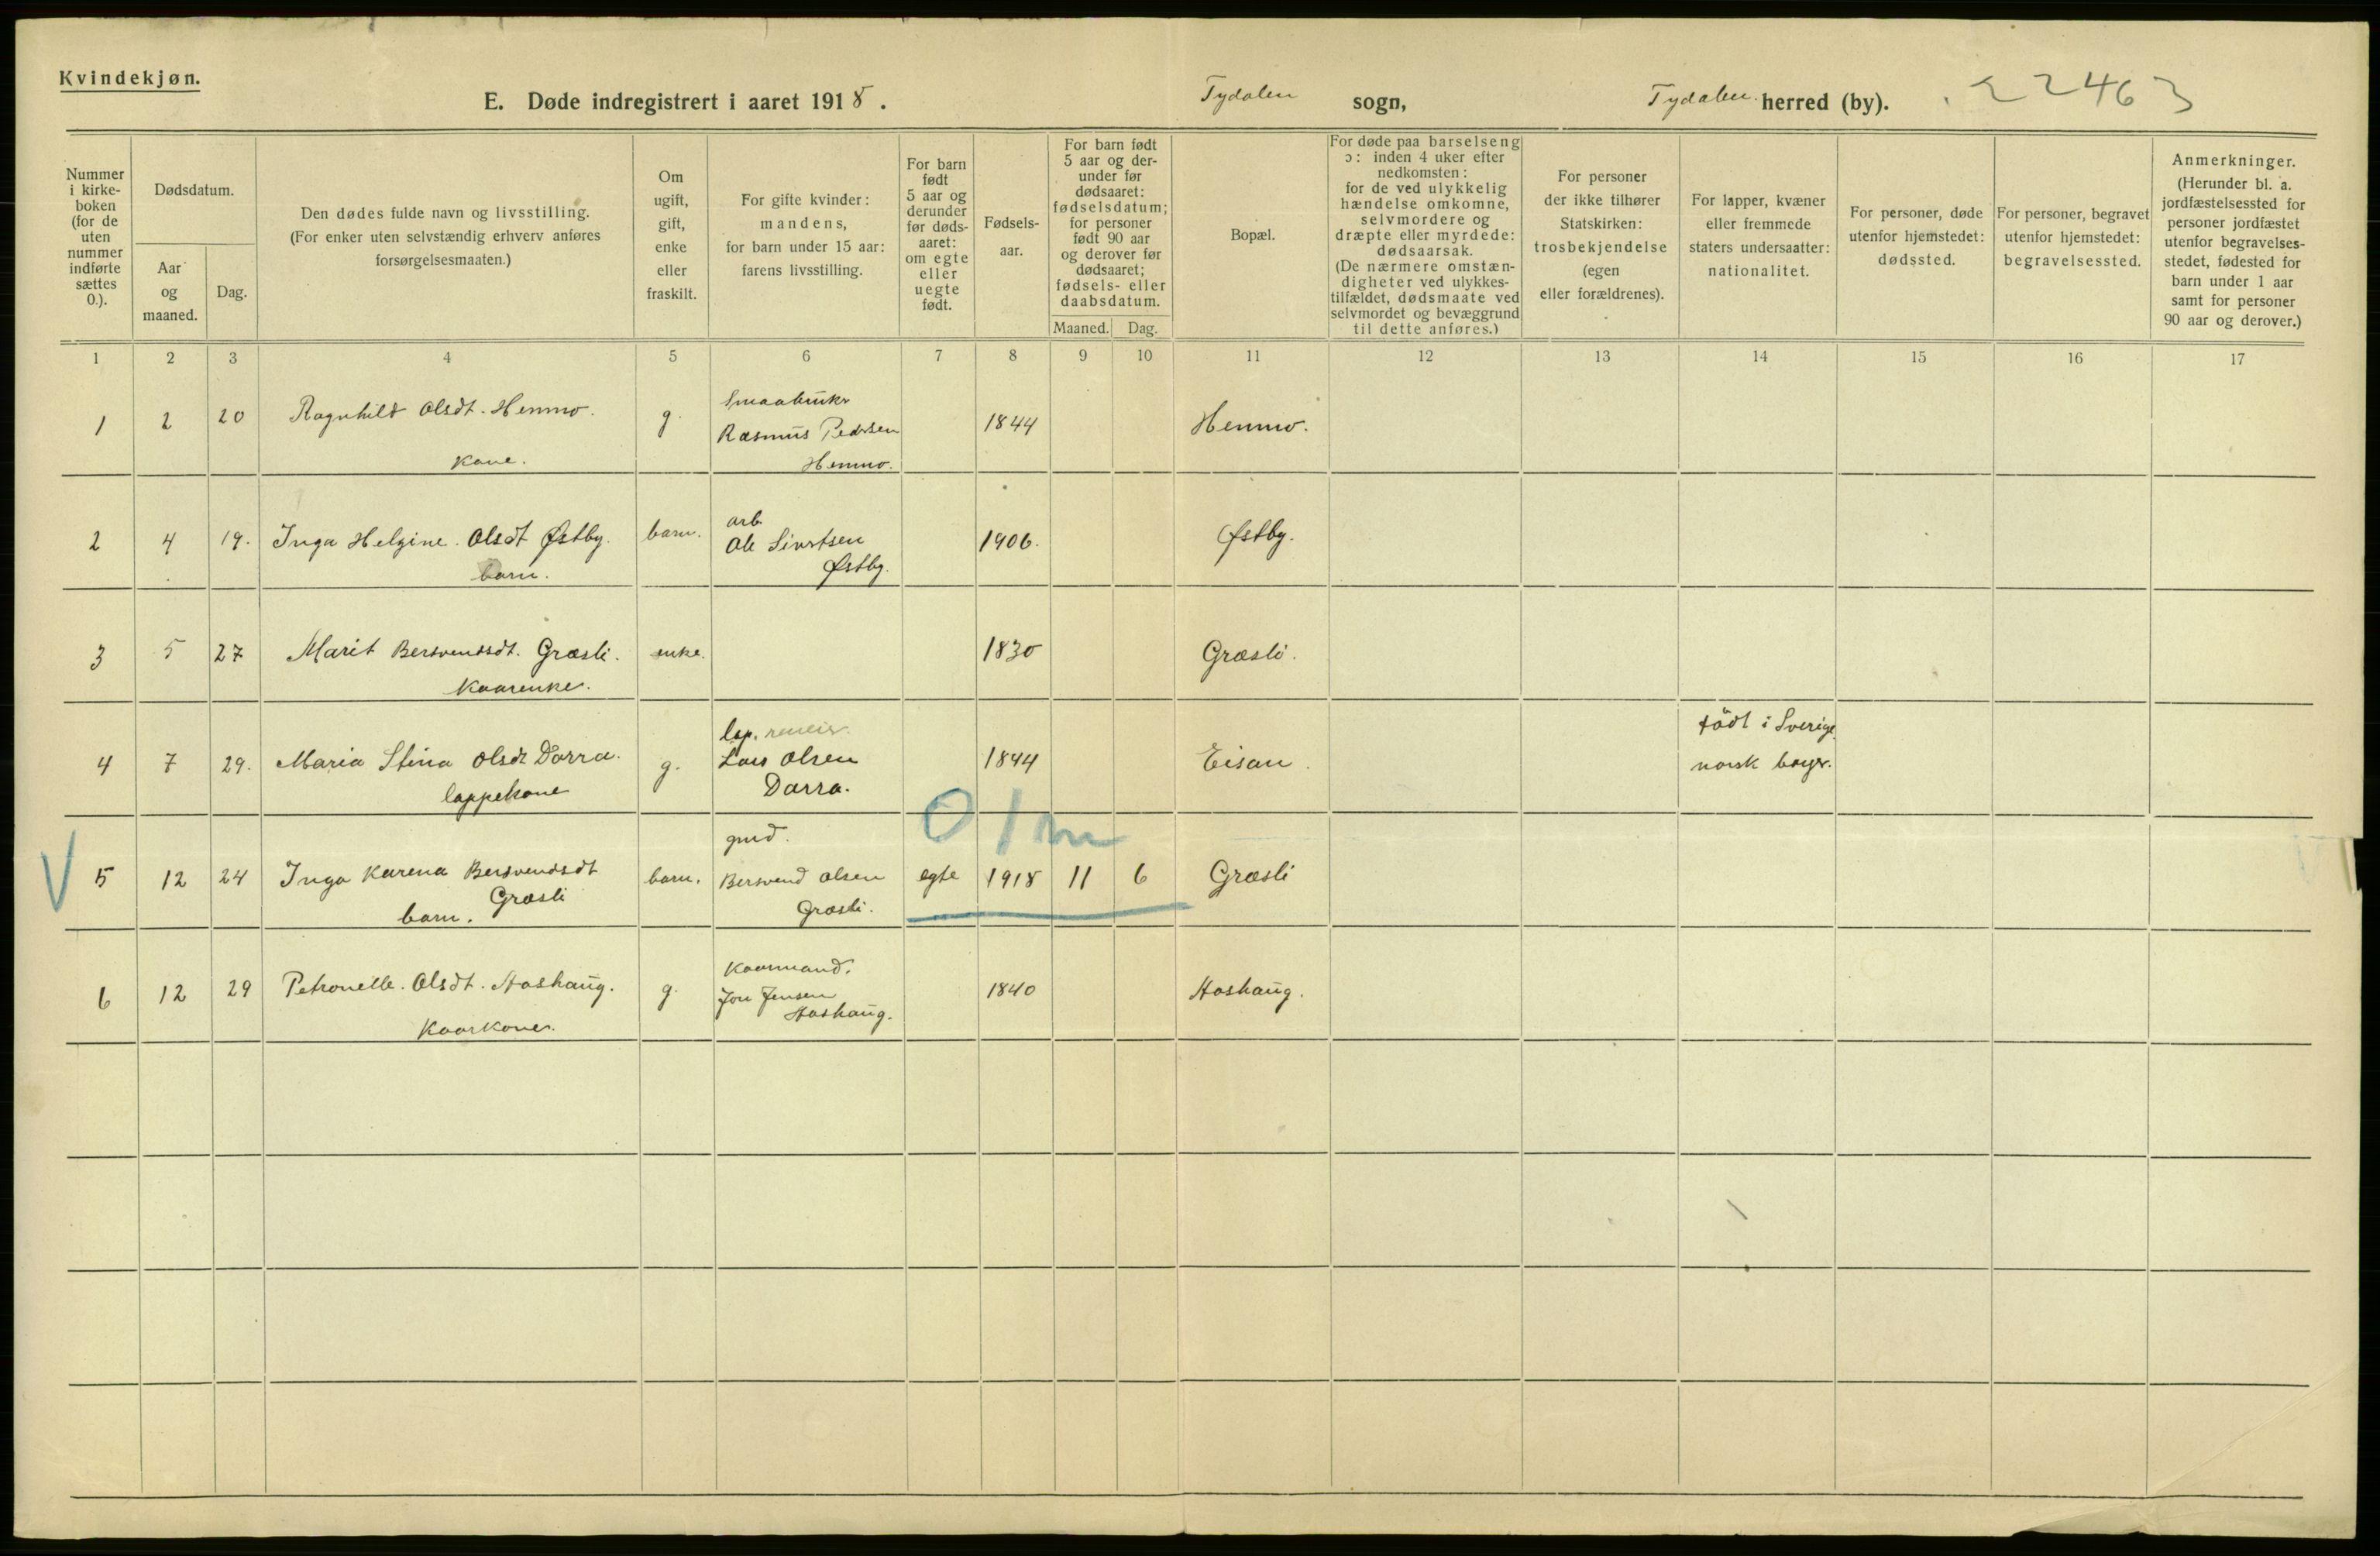 Kvindekjøn.
E. Døde indregistrert i aaret 1918. Tydalen sogn, Tydalen herred (by). 22463
Nummer i kirke-boken (for de uten nummer indførte sættes 0.).
Dødsdatum.
Aar og maaned.
Dag.
Den dødes fulde navn og livsstilling.
(For enker uten selvstændig erhverv anføres
forsørgelsesmaaten.)
Om ugift, gift, enke eller fraskilt.
For gifte kvinder:
mandens,
for barn under 15 aar:
farens livsstilling.
For barn født 5 aar og derunder før døds-aaret: om egte eller uegte født.
Fødsels-aar.
For barn født 5 aar og der-under før dødsaaret: fødselsdatum; for personer født 90 aar og derover før dødsaaret; fødsels- eller daabsdatum.
Maaned. Dag.
Bopæl.
For døde paa barselseng
ɔ: inden 4 uker efter
nedkomsten:
for de ved ulykkelig
hændelse omkomne,
selvmordere og
dræpte eller myrdede:
dødsaarsak.
(De nærmere omstæn-
digheter ved ulykkes-
tilfældet, dødsmaate ved
selvmordet og bevæggrund
til dette anføres.)
For personer
der ikke tilhører
Statskirken:
trosbekjendelse
(egen
eller forældrenes).
For lapper, kvæner
eller fremmede
staters undersaatter:
nationalitet.
For personer, døde
utenfor hjemstedet:
dødssted.
For personer, begravet
utenfor hjemstedet:
begravelsessted.
Anmerkninger.
(Herunder bl. a.
jordfæstelsessted for
personer jordfæstet
utenfor begravelses-
stedet, fødested for
barn under 1 aar
samt for personer
90 aar og derover.)
1 2 3 4 5 6 7 8 9 10 11 12 13 14 15 16 17
1 2 20 Ragnhild Olsdt. Hemmo. kone. g. Smaabruker Rasmus Pedersen Hemmo. 1844 Hemmo.
2 4 19. Inga Helgine. Olsdt Østby. barn. barn. arb. Ole Sivertsen Østby. 1906. Østby.
3 5 27 Marit Bersvendsdt. Græsli. Kaarenke. enke. 1830 Græsli.
4 7 29. Maria Stina Olsdt Dorra. lappekone g. lap. Lars Olsen Dorra. 1844 Eisan. född i Sverige. norsk borger.
0 1 m
V 5 12 24 Inga Karena Bersvendsdt Græsli barn. barn. gmd. Bersvend Olsen Græsli. egte 1918 11 6 Græsli
6 12 29 Petronelle. Olsdt. Aashaug. Kaarkone. g. Kaarmand. Jon Jensen Aashaug. 1840 Aashaug.